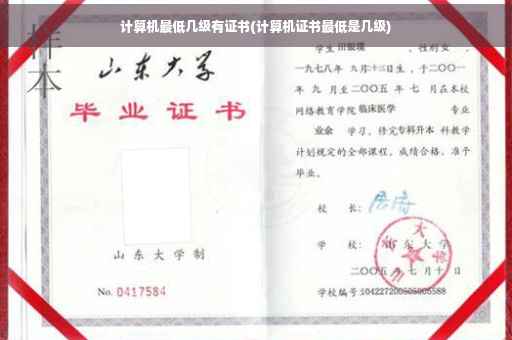 计算机最低几级有证书(计算机证书最低是几级)
样本
山东大学
毕业证书
山东大学制
No. 0417584
学生田银瑞 ,性别女 ,
一九七八年 九月十三日生,于二〇〇一
年 九 月至二〇〇五 年 七 月在本校
网络教育学院临床医学 专业
业余 学习,修完专科升本 科教学
计划规定的全部课程,成绩合格,准予
毕业。
校 长:
学 校: 山东大学
二〇〇五 年 七 月 十 日
学校编号:104227200505005588